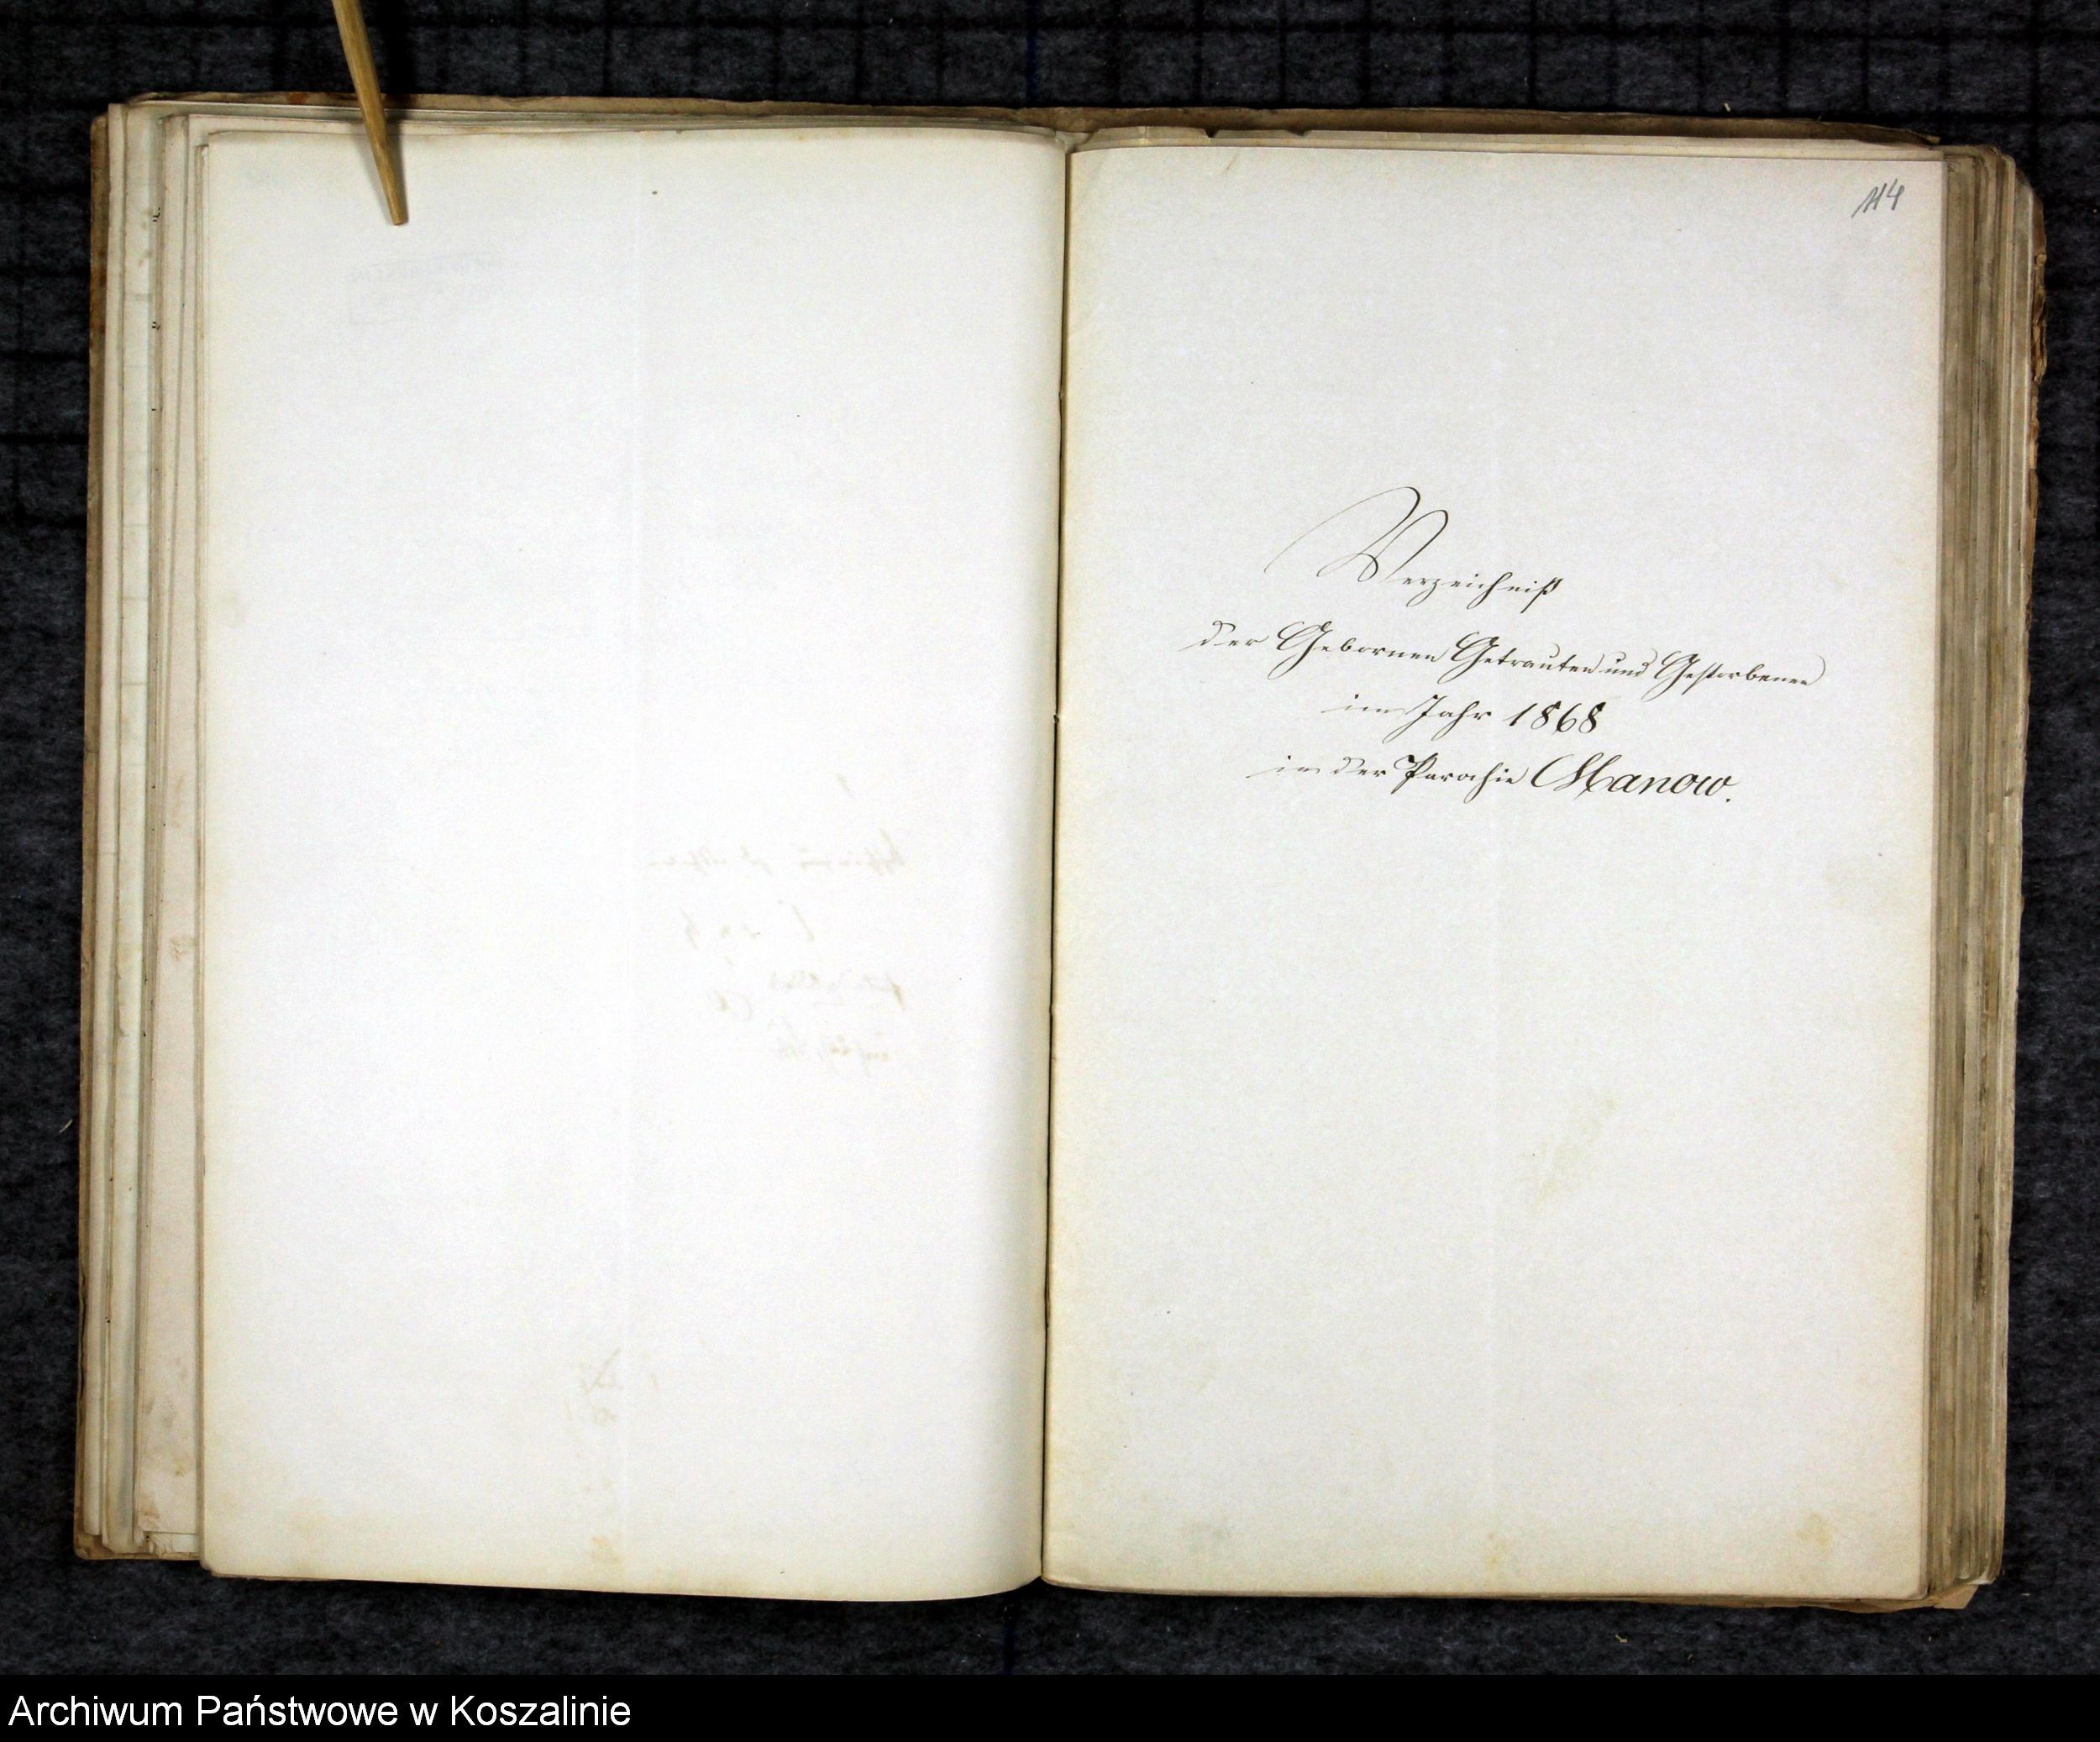 114
Verzeichniß
der Gebornen Getrauten und Gestorbenen
im Jahr 1868
in der Parochie Manow.
Archiwum Państwowe w Koszalinie